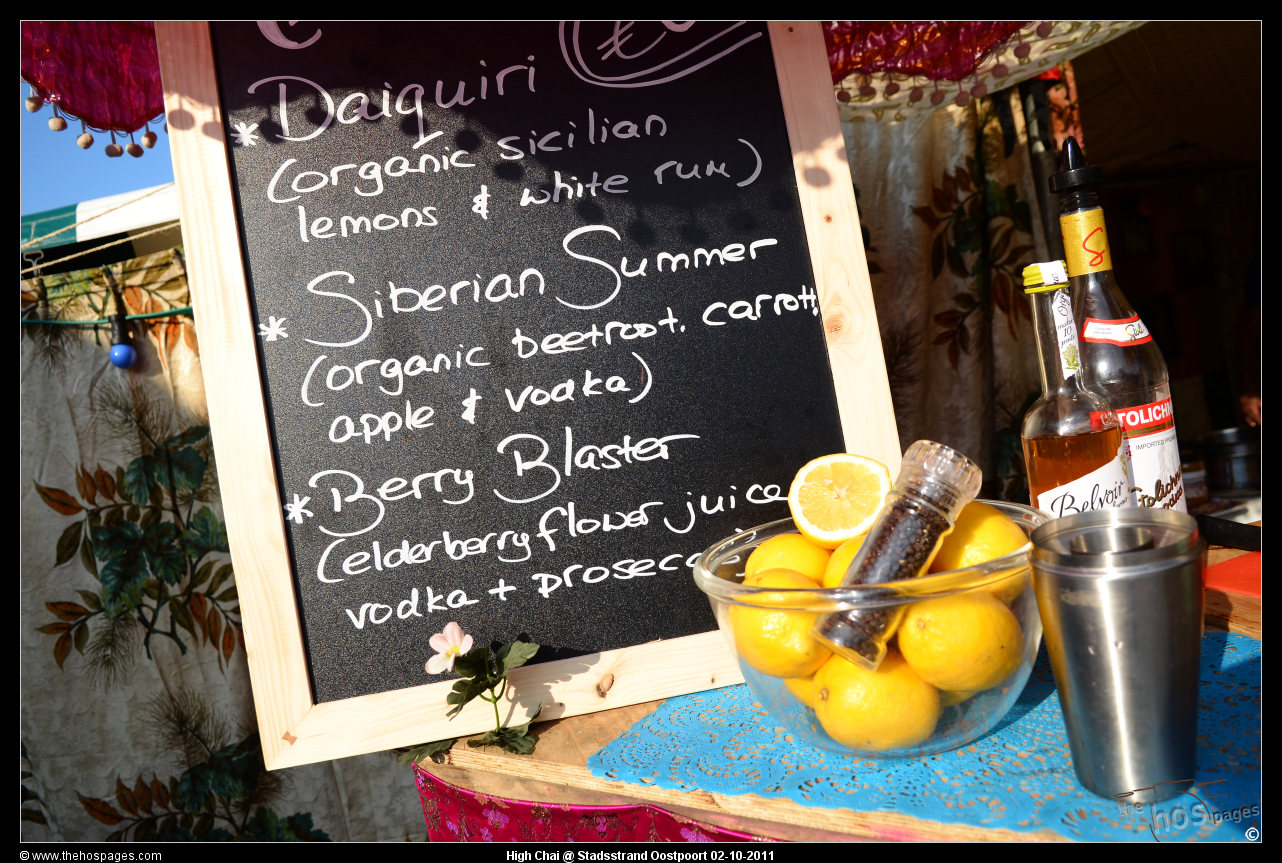 Daiquiri
* (organic sicilian
lemons & white rum)
Siberian Summer
* (organic beetroot, carrott,
apple & vodka)
Berry Blaster
* (elderberryflower juice
vodka + prosecco)
S
TOLICH
IMPORTED
Belvoir
the hos pages
©
© www.thehospages.com
High Chai @ Stadsstrand Oostpoort 02-10-2011